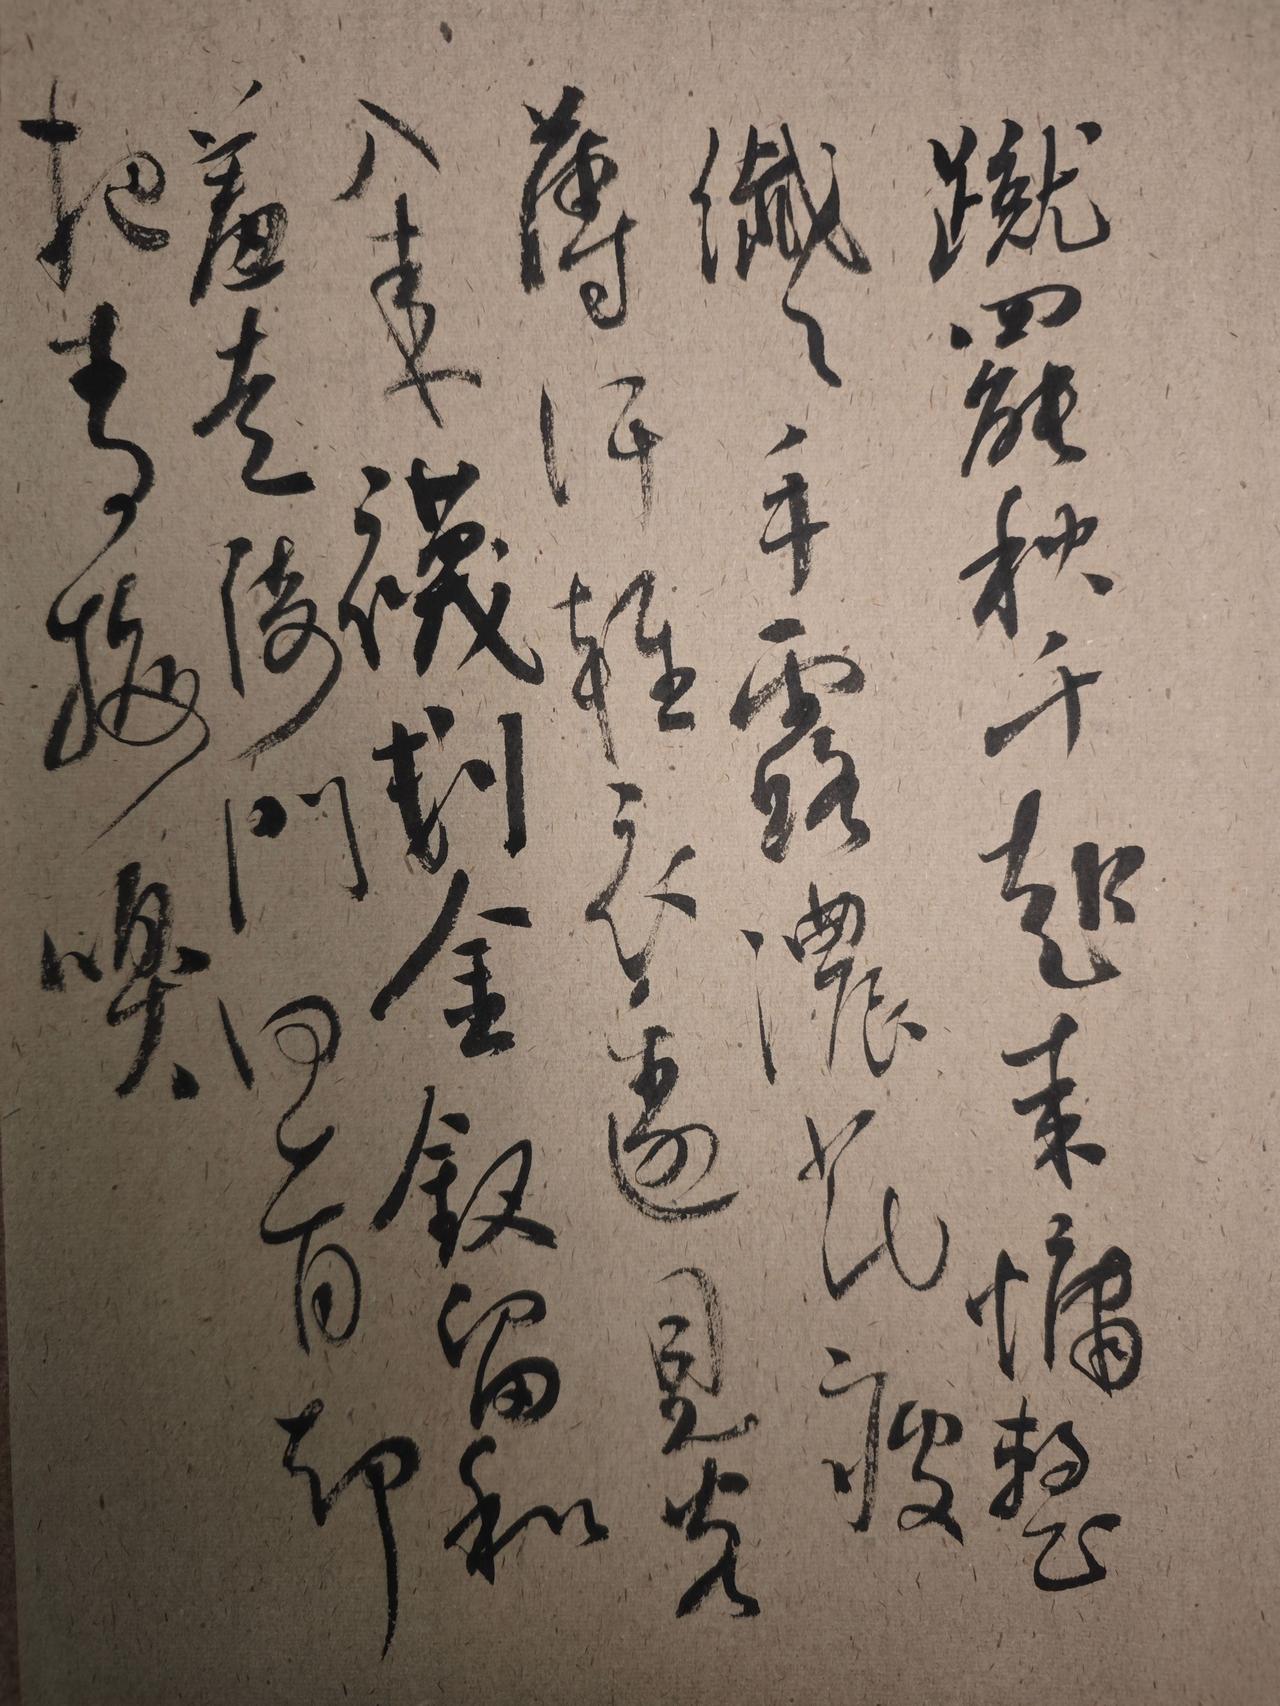 蹴罷秋千起來慵整
纖々手露濃花瘦
薄汗輕衣透見客
入來襪剗金釵留和
羞走倚門回首却
把青梅嗅